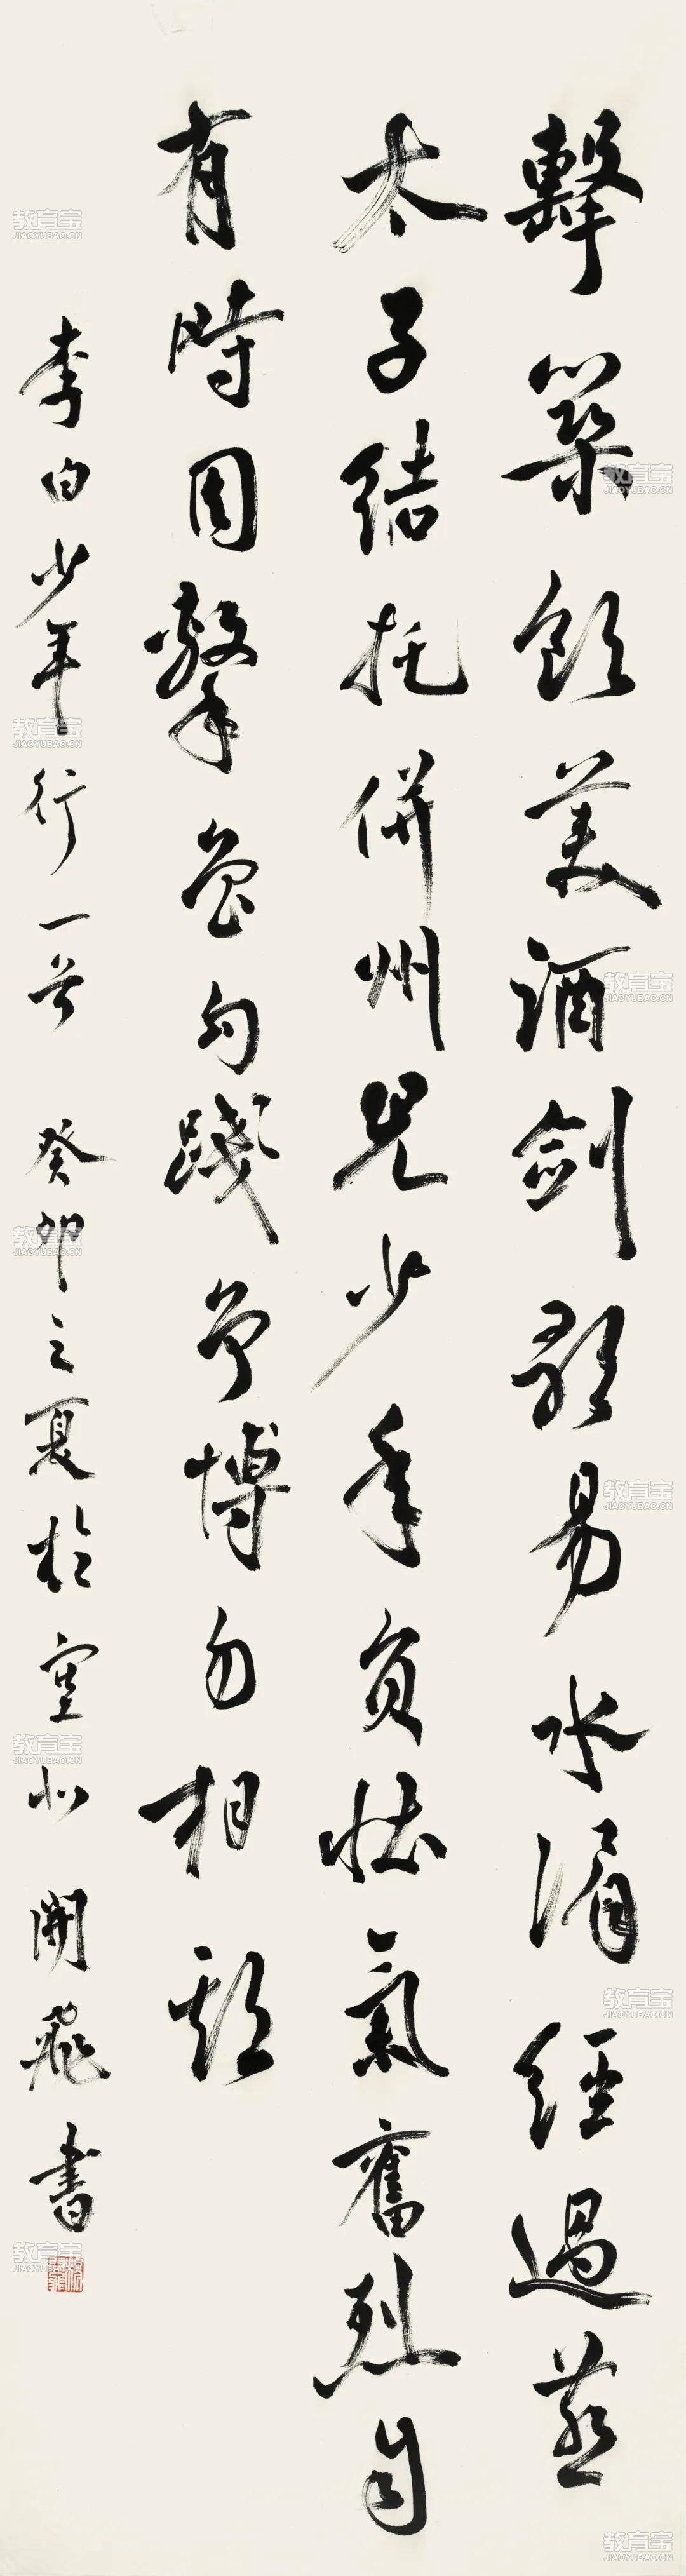 擊築飲美酒劍歌易水湄經過燕
太子結托併州兒少年負壯氣奮烈自
有時因擊魯勾踐爭博勿相欺
李白少年行一首 癸卯之夏於塞北 開飛書
教育宝
JIAOYUBAO.CN